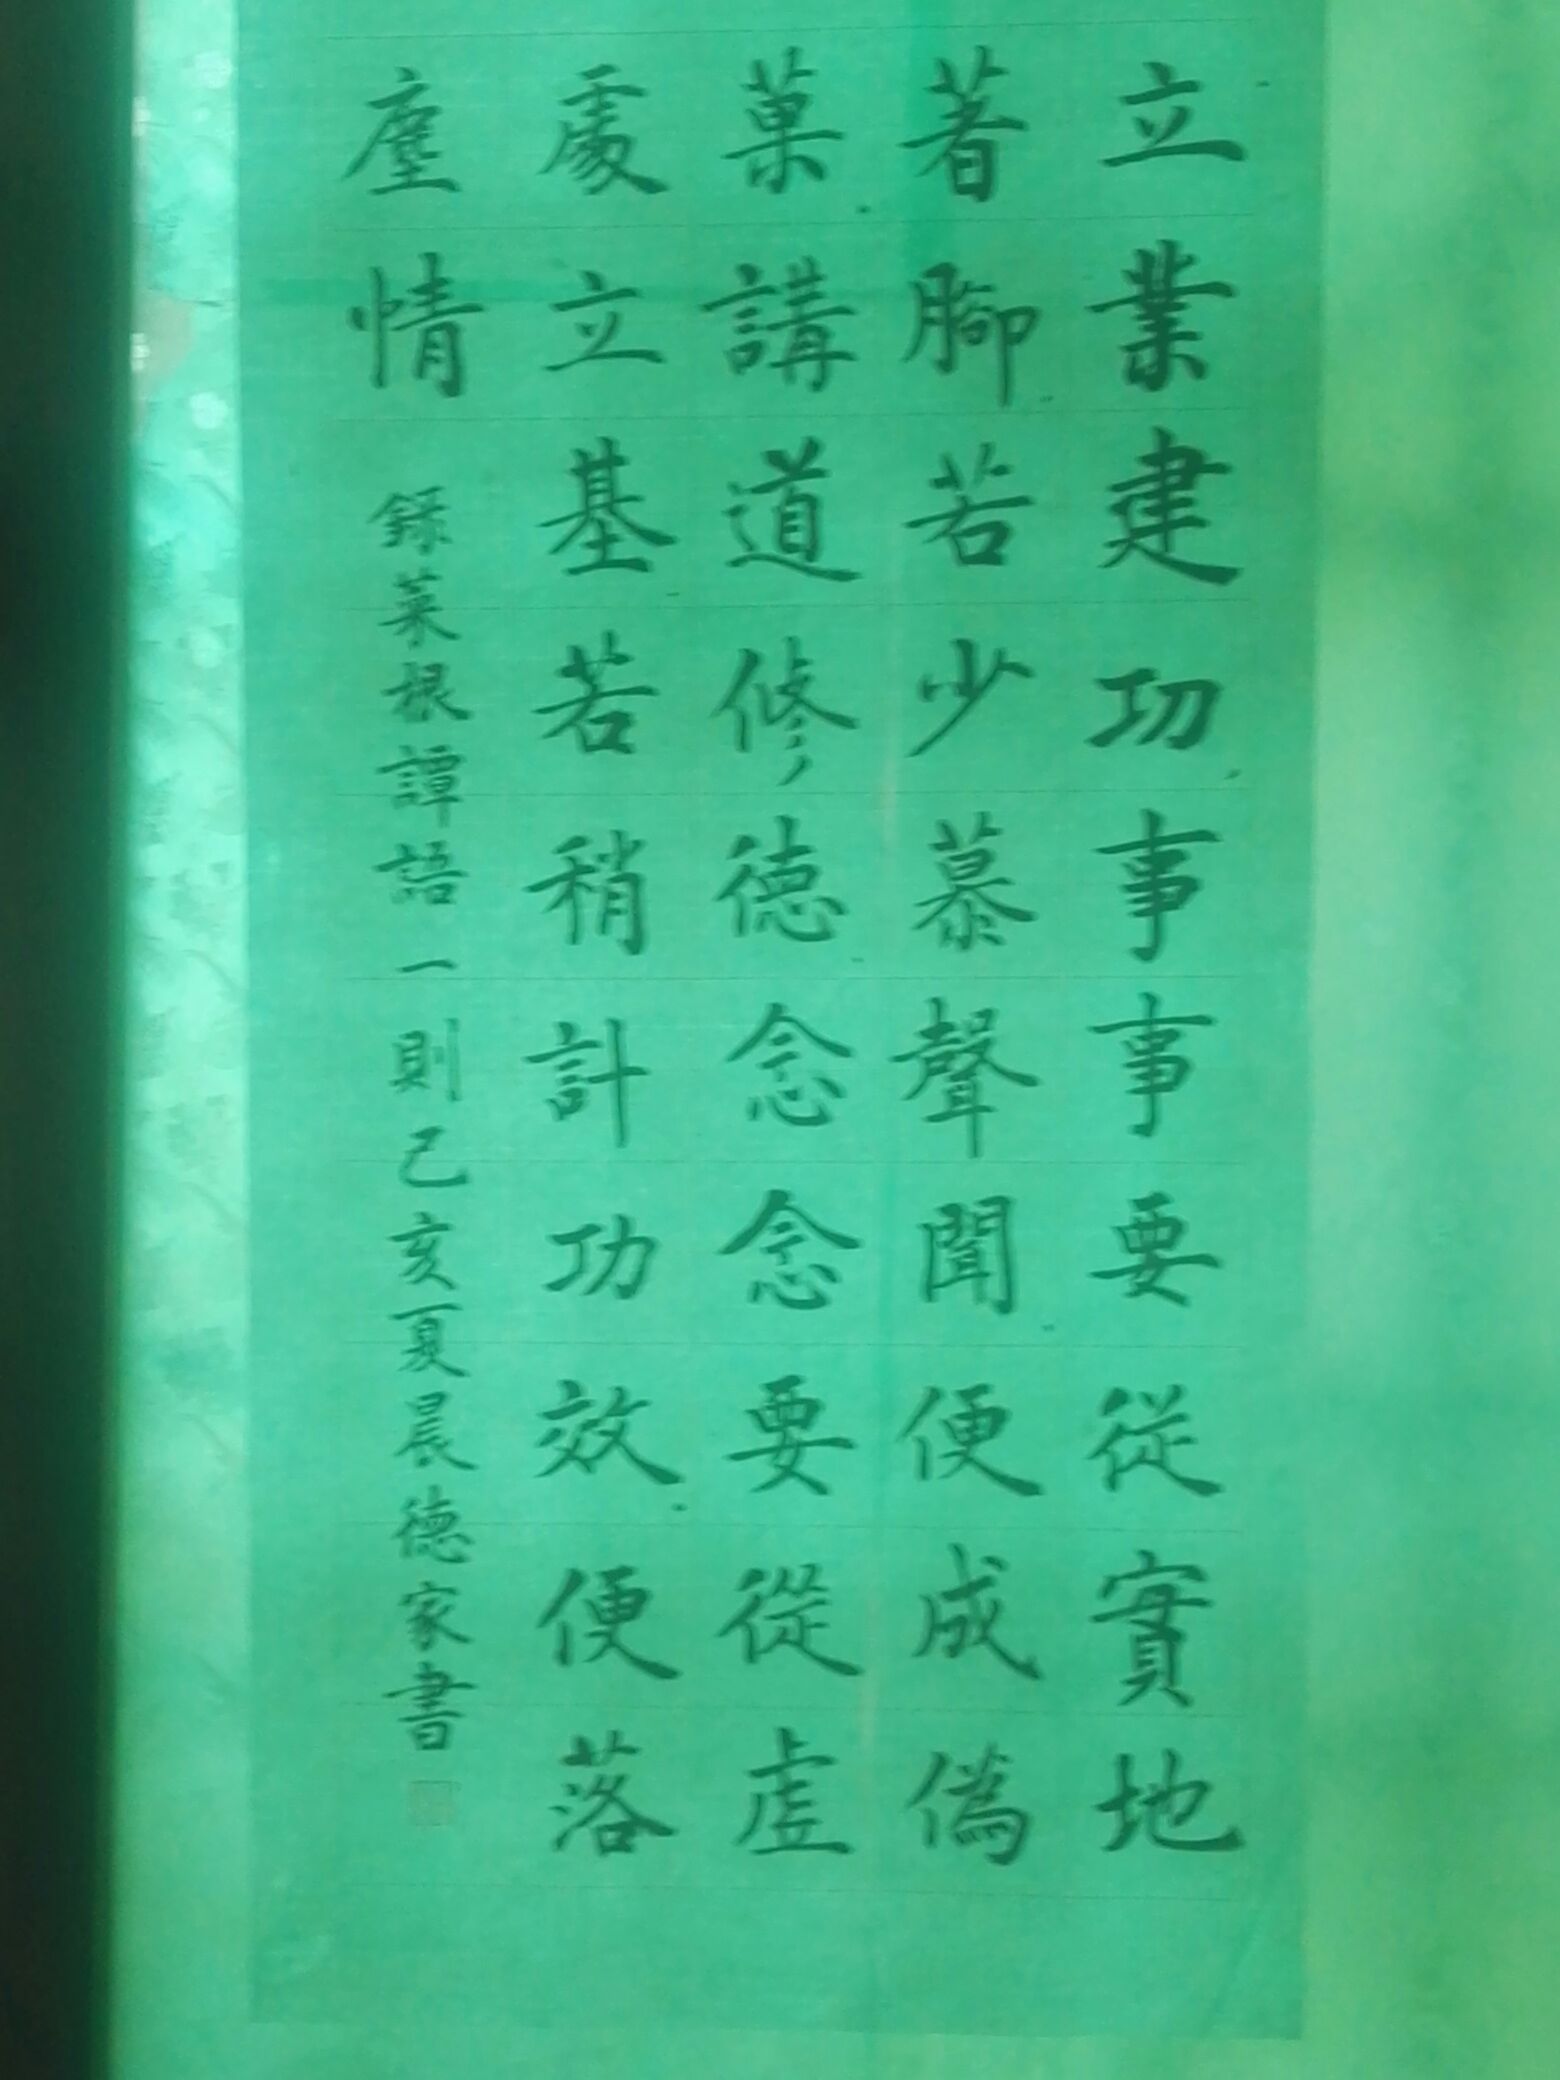 立業建功事事要從實地
著腳若少慕聲聞便成偽
菓講道修德念念要從虛
處立基若稍計功效便落
塵情
錄菜根譚語一則己亥夏晨德家書